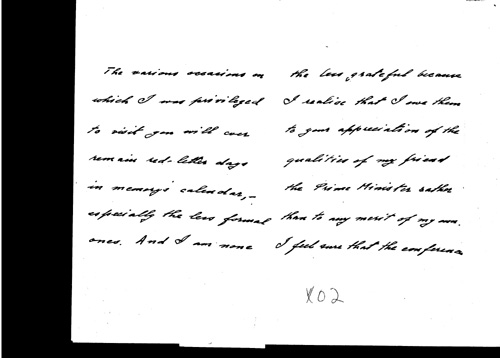 The various occasions on
which I was privileged
to visit you will ever
remain red-letter days
in memory's calendar,—
especially the less formal
ones. And I am none
the less grateful because
I realise that I owe them
to your appreciation of the
qualities of my friend
the Prime Minister rather
than to any merit of my own.
I feel sure that the conference
102